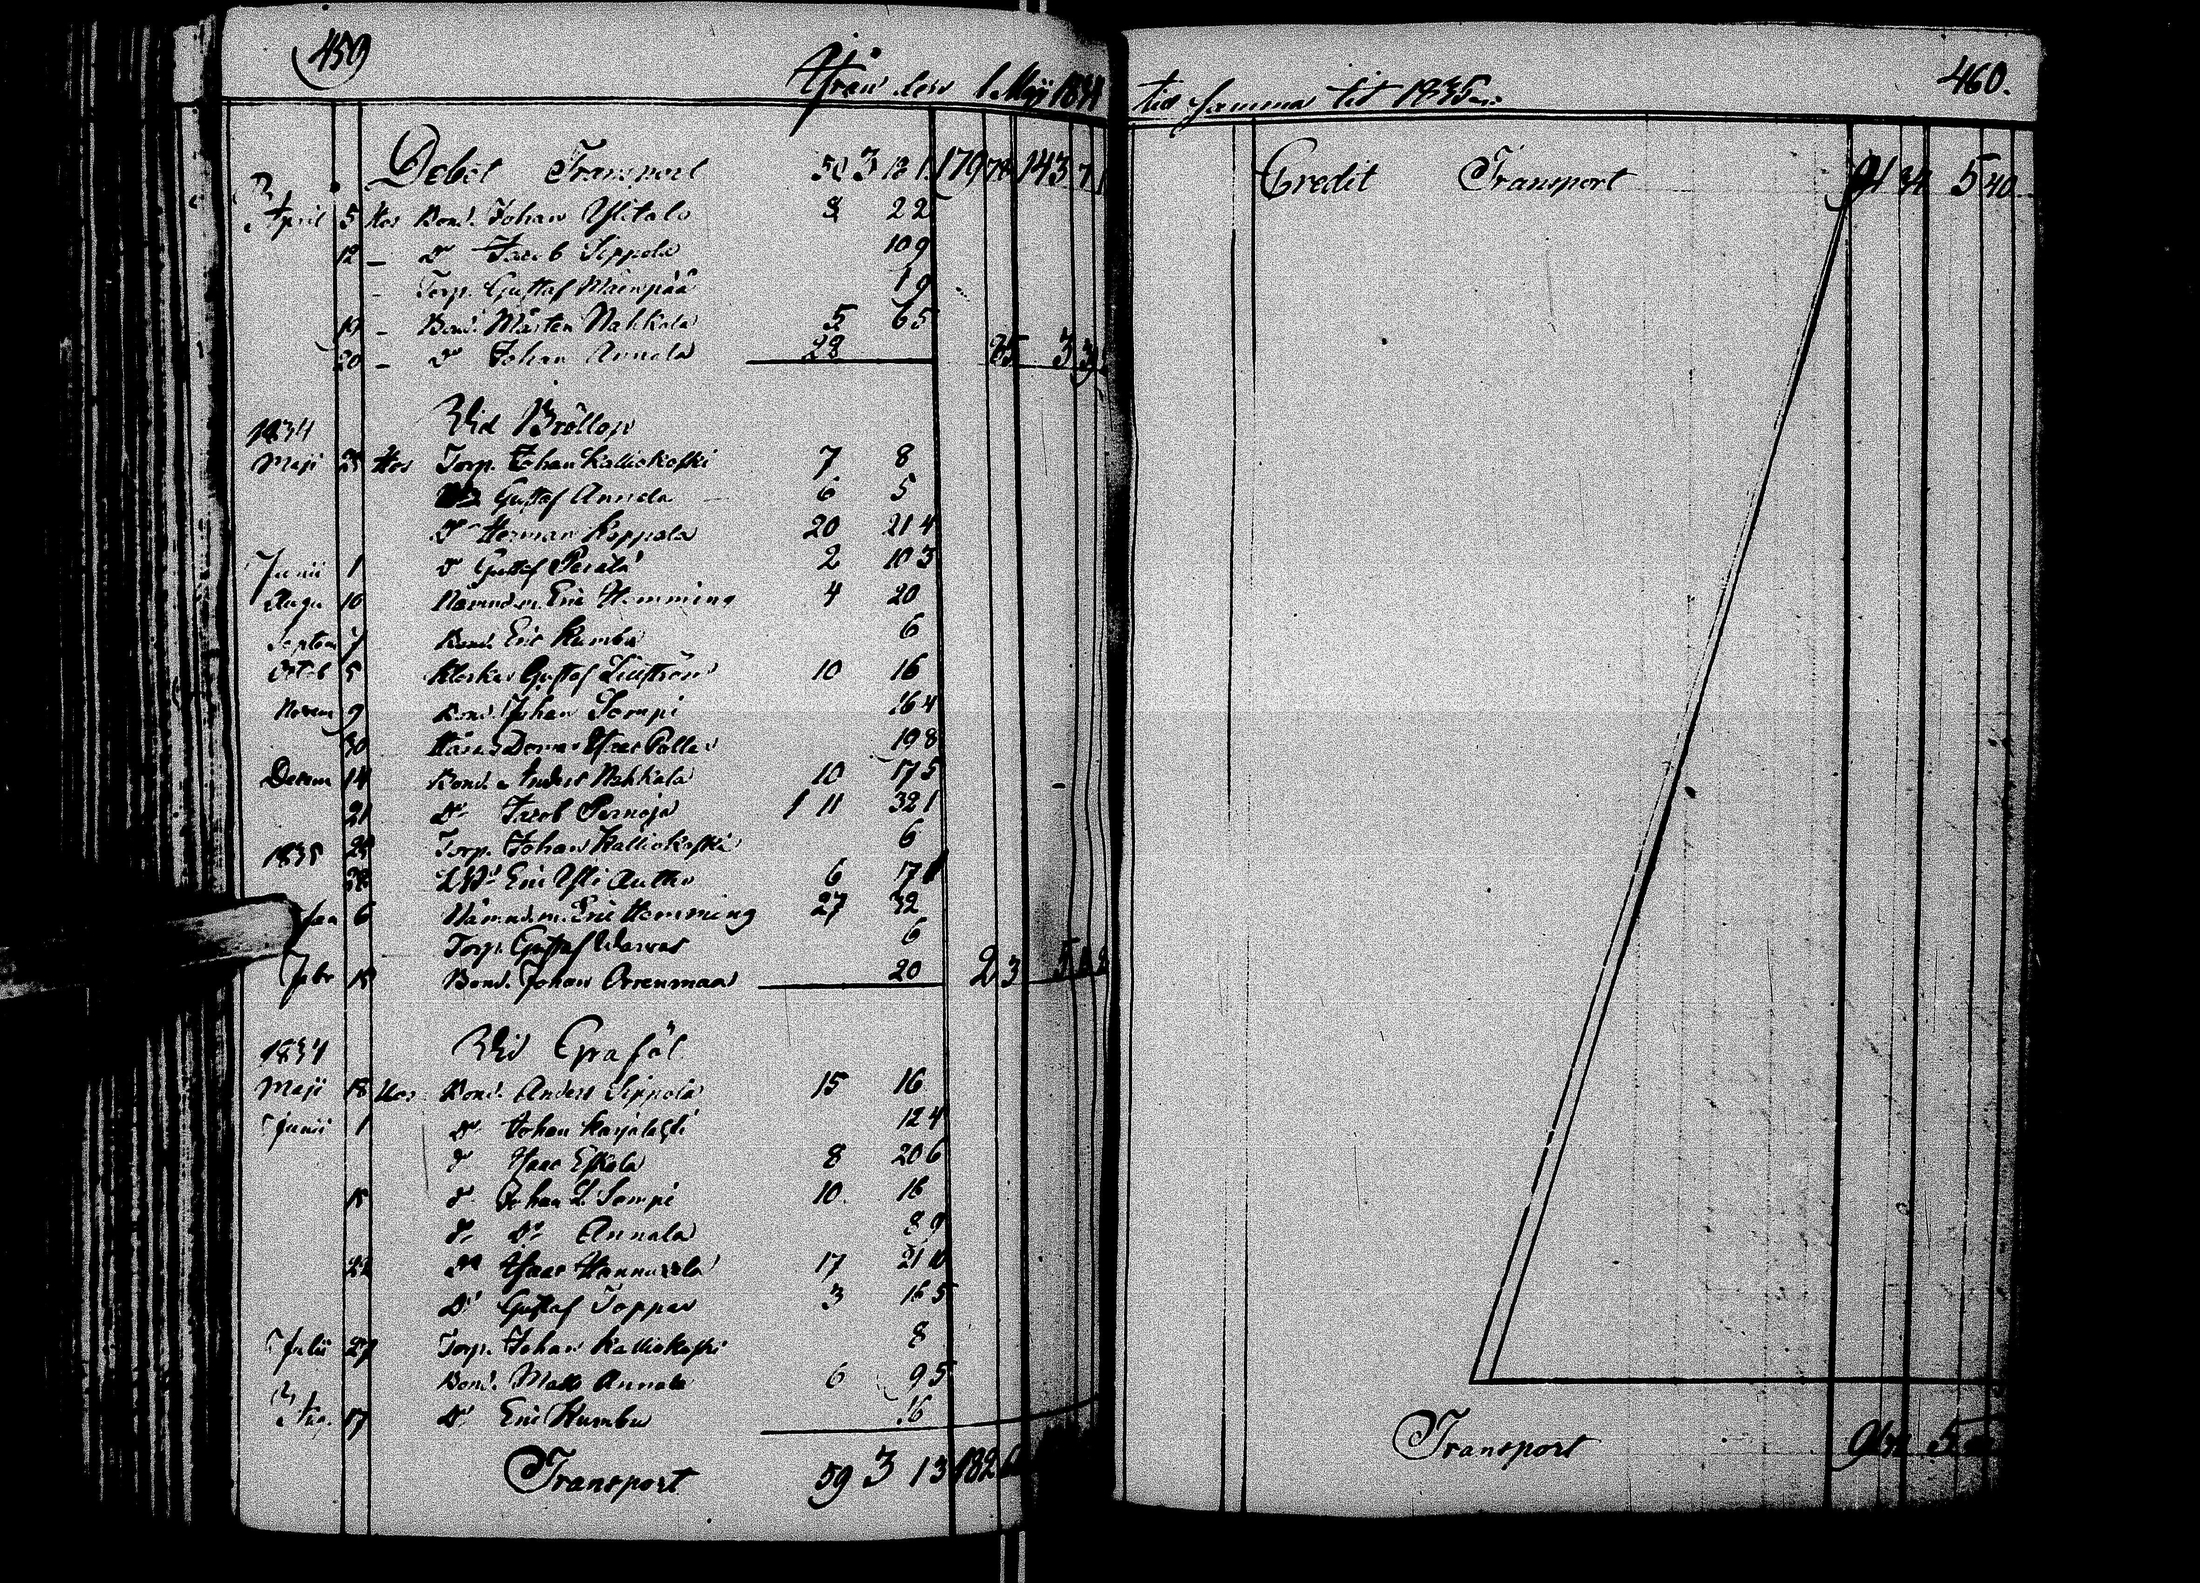 459
Ifrån den 1 Maji 1834
Debet Transport 50 3 12 1 179 78 143 7 1
April 5 Hos Bond. Johan Ylitalo 8 22
12 – Do Jacob Sippola 10 9
– Torp. Gustaf Mäenpää 1 9
19 – Bond. Mårten Nahkola 5 65
20 – Do Johan Annala 28 85 3 3
1834 Vid Bröllop
Maji 25 Hos Torp. Johan Kalliokoski 7 8
Gustaf Annala 6 5
Do Herman Koppola 20 21 4
Junii 1 Do Gustaf Perälä 2 10 3
Augu 10 Nämndem. Eric Hemming 4 20
Septem 7 Bond. Eric Humbu 6
Octob 5 Klockar Gustaf Lillström 10 16
Novem 9 Bond. Johan Sompi 16 4
30 19 8
Decem 14 Bond. Anders Nahkala 10 17 5
21 Do Jacob Pernaja 1 11 32 1
28 Torp. Johan Kalliokoski 6
1835
Eric Yli Autho 6 17
Jan 6 Nämndem. Eric Hemming 27 32
Torp. Gustaf Warvas 6
Febr 15 Bond. Johan Orrenmaa 20 2 3 5
1834 Vid Graföl
Maji 18 Hos Bond. Anders Sippola 15 16
Junii 1 Do Johan Karjalahti 12 4
Do Isaac Eskola 8 20 6
15 Do Johan L. Sompi 10 16
Do Do Annala 8 9
22 Do Isaac Hannuxela 17 21 10
Do Gustaf Toppar 3 16 5
Julii 27 Torp. Johan Kalliokoski 8
Bond. Matts Annala 6 9 5
Aug. 17 Do Eric Humbu 16
Transport 59 3 13 182
460.
till samma tid 1835
Credit Transport 91 34 5 40
Transport 91 34 5